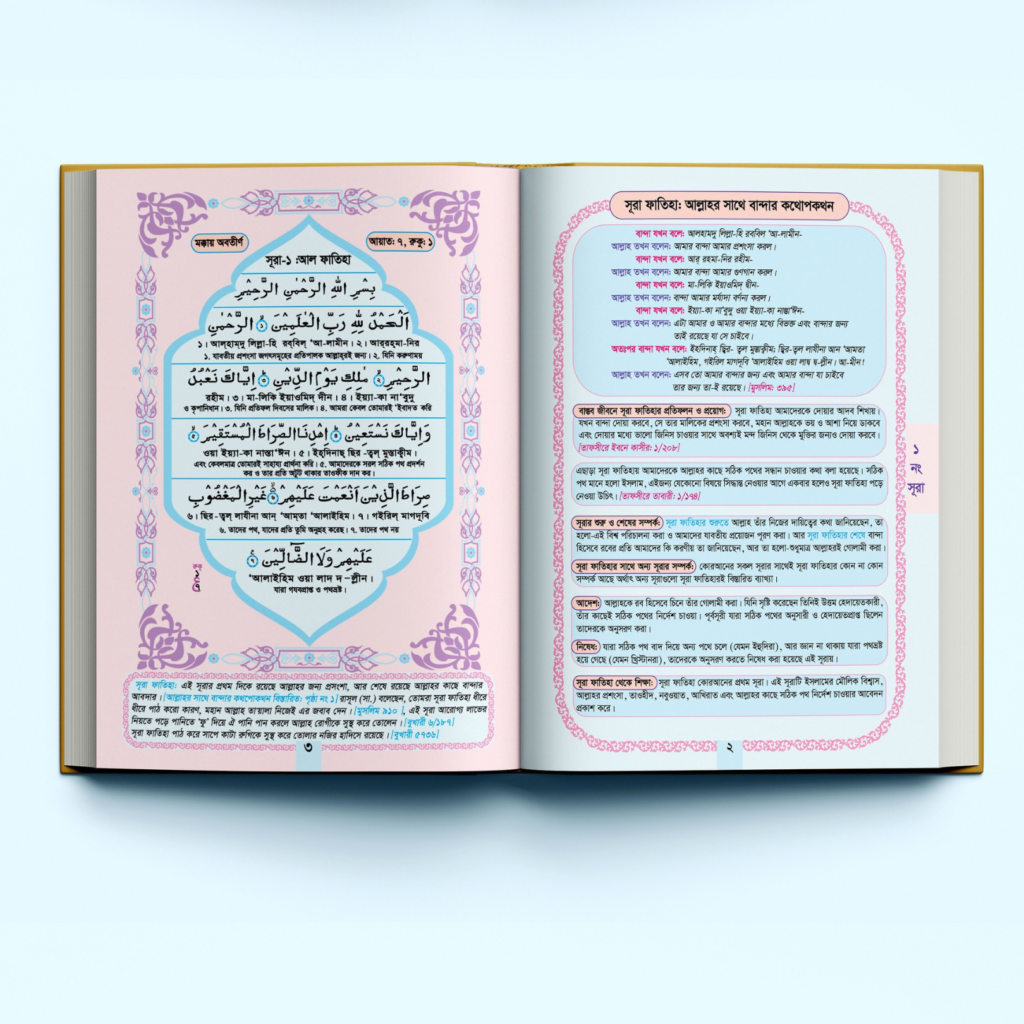 মক্কায় অবতীর্ণ
আয়াত: ৭, রুকু: ১
সূরা-১ :আল ফাতিহা
بِسْمِ اللهِ الرَّحْمٰنِ الرَّحِيْمِ
اَلْحَمْدُ لِلّٰهِ رَبِّ الْعٰلَمِيْنَ ۙ۝۱ الرَّحْمٰنِ
১। আল্‌হামদু লিল্লা-হি রব্‌বিল্‌ 'আ-লামীন। ২। আর্‌রহ্‌মা-নির
১. যাবতীয় প্রশংসা জগৎসমূহের প্রতিপালক আল্লাহরই জন্য। ২. যিনি করুণাময়
الرَّحِيْمِ ۙ۝۲ مٰلِكِ يَوْمِ الدِّيْنِ ۝۳ اِيَّاكَ نَعْبُدُ
রহীম। ৩। মা-লিকি ইয়াওমিদ্‌ দীন। ৪। ইয়্যা-কা না'বুদু
ও কৃপানিধান। ৩. যিনি প্রতিফল দিবসের মালিক। ৪. আমরা কেবল তোমারই 'ইবাদত করি
وَاِيَّاكَ نَسْتَعِيْنُ ۝۴ اِهْدِنَا الصِّرَاطَ الْمُسْتَقِيْمَ ۝۵
ওয়া ইয়্যা-কা নাস্তা'ঈন। ৫। ইহ্‌দিনাছ্‌ ছির -তুল্‌ মুস্তাক্বীম।
এবং কেবলমাত্র তোমারই সাহায্য প্রার্থনা করি। ৫. আমাদেরকে সরল সঠিক পথ প্রদর্শন
কর ও তার প্রতি অটুট থাকার তাওফীক দান কর।
صِرَاطَ الَّذِيْنَ اَنْعَمْتَ عَلَيْهِمْ ۝۶ غَيْرِ الْمَغْضُوْبِ
৬। ছির- ত্বল্‌ লাযীনা আন্‌ 'আম্‌তা 'আলাইহিম। ৭। গইরিল্‌ মাগদূবি
৬. তাদের পথ, যাদের প্রতি তুমি অনুগ্রহ করেছ। ৭. তাদের পথ নয়
عَلَيْهِمْ وَلَا الضَّآلِّيْنَ ۝۷
'আলাইহিম ওয়া লাদ দ—ল্লীন।
যারা গযবপ্রাপ্ত ও পথভ্রষ্ট।
সূরা ফাতিহা: এই সূরার প্রথম দিকে রয়েছে আল্লাহর জন্য প্রসংশা, আর শেষে রয়েছে আল্লাহর কাছে বান্দার
আবদার। [আল্লাহর সাথে বান্দার কথপোকথন বিস্তারিত: পৃষ্ঠা নং ১] রাসূল (সা.) বলেছেন, তোমরা সূরা ফাতিহা ধীরে
ধীরে পাঠ করো কারণ, মহান আল্লাহ তা'য়ালা নিজেই এর জবাব দেন। [মুসলিম ৯১০ ], এই সূরা আরোগ্য লাভের
নিয়তে পড়ে পানিতে 'ফু' দিয়ে ঐ পানি পান করলে আল্লাহ রোগীকে সুস্থ করে তোলেন। [বুখারী ৬/১৮৭]
সূরা ফাতিহা পাঠ করে সাপে কাটা রুগিকে সুস্থ করে তোলার নজির হাদিসে রয়েছে। [বুখারী ৫৭৩৬]
৩
সূরা ফাতিহা: আল্লাহর সাথে বান্দার কথোপকথন
বান্দা যখন বলে: আলহামদু লিল্লা-হি রববিল 'আ-লামীন-
আল্লাহ তখন বলেন: আমার বান্দা আমার প্রশংসা করল।
বান্দা যখন বলে: আর্‌ রহমা-নির রহীম-
আল্লাহ তখন বলেন: আমার বান্দা আমার গুণগান করল।
বান্দা যখন বলে: মা-লিকি ইয়াওমিদ্‌ দ্বীন-
আল্লাহ তখন বলেন: বান্দা আমার মর্যাদা বর্ণনা করল।
বান্দা যখন বলে: ইয়্যা-কা না'বুদু ওয়া ইয়্যা-কা নাস্তা'ঈন-
আল্লাহ তখন বলেন: এটা আমার ও আমার বান্দার মধ্যে বিভক্ত এবং বান্দার জন্য
তাই রয়েছে যা সে চাইবে।
অতঃপর বান্দা যখন বলে: ইহদিনাছ্‌ ছির- তুল মুস্তাক্বীম: ছির-তুল লাযীনা আন 'আমতা
'আলাইহিম, গইরিল মাগদূবি 'আলাইহিম ওয়া লাদ্ব দ্ব-ল্লীন। আ-মীন!
আল্লাহ তখন বলেন: এসব তো আমার বান্দার জন্য এবং আমার বান্দা যা চাইবে
তার জন্য তা-ই রয়েছে। [মুসলিম: ৩৯৫]
বাস্তব জীবনে সূরা ফাতিহার প্রতিফলন ও প্রয়োগ: সূরা ফাতিহা আমাদেরকে দোয়ার আদব শিখায়।
যখন বান্দা দোয়া করবে, সে তার মালিকের প্রশংসা করবে, মহান আল্লাহকে ভয় ও আশা নিয়ে ডাকবে
এবং দোয়ার মধ্যে ভালো জিনিস চাওয়ার সাথে অবশ্যই মন্দ জিনিস থেকে মুক্তির জন্যও দোয়া করবে।
[তাফসীরে ইবনে কাসীর: ১/২০৮]
এছাড়া সূরা ফাতিহায় আমাদেরকে আল্লাহর কাছে সঠিক পথের সন্ধান চাওয়ার কথা বলা হয়েছে। সঠিক
পথ মানে হলো ইসলাম, এইজন্য যেকোনো বিষয়ে সিদ্ধান্ত নেওয়ার আগে একবার হলেও সূরা ফাতিহা পড়ে
নেওয়া উচিৎ। [তাফসীরে তাবারী: ১/১৭৪]
সূরার শুরু ও শেষের সম্পর্ক: সূরা ফাতিহার শুরুতে আল্লাহ তাঁর নিজের দায়িত্বের কথা জানিয়েছেন, তা
হলো-এই বিশ্ব পরিচালনা করা ও আমাদের যাবতীয় প্রয়োজন পূরণ করা। আর সূরা ফাতিহার শেষে বান্দা
হিসেবে রবের প্রতি আমাদের কি করণীয় তা জানিয়েছেন, আর তা হলো-শুধুমাত্র আল্লাহরই গোলামী করা।
সূরা ফাতিহার সাথে অন্য সূরার সম্পর্ক: কোরআনের সকল সূরার সাথেই সূরা ফাতিহার কোন না কোন
সম্পর্ক আছে অর্থাৎ অন্য সূরাগুলো সূরা ফাতিহারই বিস্তারিত ব্যাখ্যা।
আদেশ: আল্লাহকে রব হিসেবে চিনে তাঁর গোলামী করা। যিনি সৃষ্টি করেছেন তিনিই উত্তম হেদায়েতকারী,
তাঁর কাছেই সঠিক পথের নির্দেশ চাওয়া। পূর্বসূরী যারা সঠিক পথের অনুসারী ও হেদায়েতপ্রাপ্ত ছিলেন
তাদেরকে অনুসরণ করা।
নিষেধ: যারা সঠিক পথ বাদ দিয়ে অন্য পথে চলে (যেমন ইহুদিরা), আর জান না থাকায় যারা পথভ্রষ্ট
হয়ে গেছে (যেমন খ্রিস্টানরা), তাদেরকে অনুসরণ করতে নিষেধ করা হয়েছে এই সূরায়।
সূরা ফাতিহা থেকে শিক্ষা: সূরা ফাতিহা কোরআনের প্রথম সূরা। এই সূরাটি ইসলামের মৌলিক বিশ্বাস,
আল্লাহর প্রশংসা, তাওহীদ, নবুওয়াত, আখিরাত এবং আল্লাহর কাছে সঠিক পথ নির্দেশ চাওয়ার আবেদন
প্রকাশ করে।
২
১
নং
সূরা